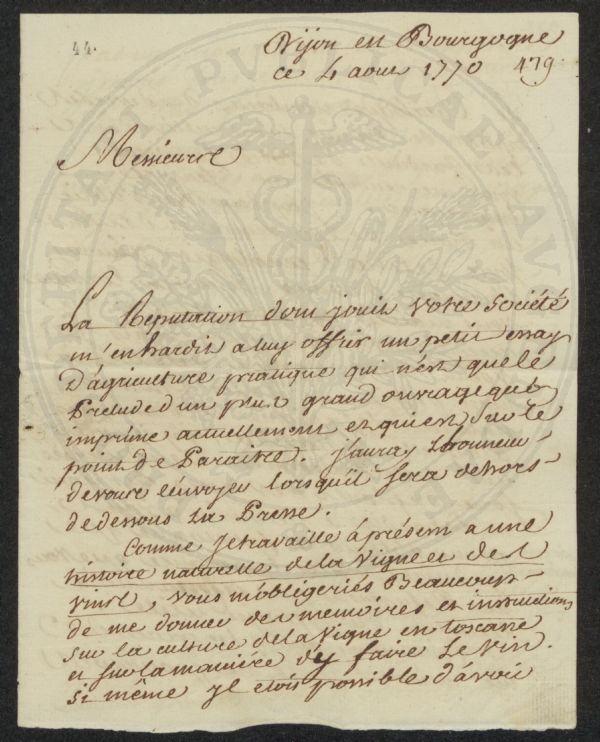 44.
Dijon en Bourgogne
ce 4 aout 1770 479
Messieurs
La Reputation dont jouit votre Société
m'enhardit a luy offrir un petit essay
d'agriculture pratique qui n'est que le
Prelude d'un plus grand ouvrage que
imprime actuellement et qui est sur le
point de Paraitre. j'auray l'honneur
de vous l'envoyer lorsqu'il sera dehors
de dessous la Presse.
Comme je travaille à présent a une
histoire naturelle de la Vigne et des
vins, vous m'obligeriés Beaucoup
de me donner des memoires et instructions
sur la culture de la Vigne en toscane
et sur la maniére d'y faire Le vin.
si même yl etoit possible d'avoir